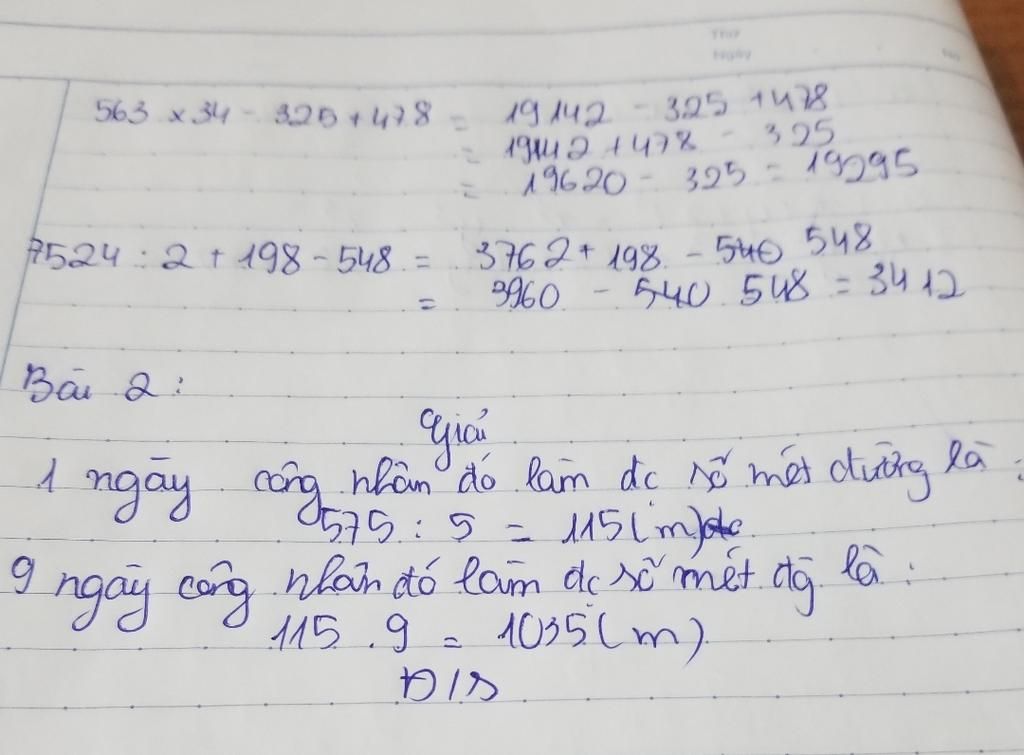 Thứ
Ngày
No
563 x 34 - 325 + 478 = 19142 - 325 + 478
= 19142 + 478 - 325
= 19620 - 325 = 19295
7524 : 2 + 198 - 548 = 3762 + 198 - 540 548
= 3960 - 540 548 = 3412
Bài 2 :
Giải
1 ngày công nhân đó làm đc số mét đường là :
575 : 5 = 115 (m) đc
9 ngày công nhân đó làm đc số mét đg là :
115 . 9 = 1035 (m)
Đ/S